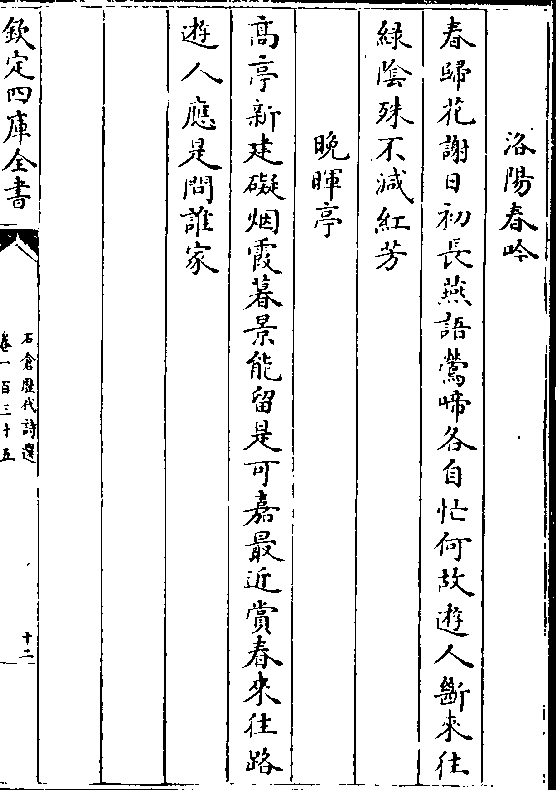 洛陽春吟
春歸花謝日初長燕語鶯啼各自忙何故遊人斷來往
綠陰殊不減紅芳
晚暉亭
高亭新建礙烟霞暮景能留是可嘉最近賞春來往路
遊人應是問誰家
欽定四庫全書
石倉歷代詩選
卷一百三十五
十二